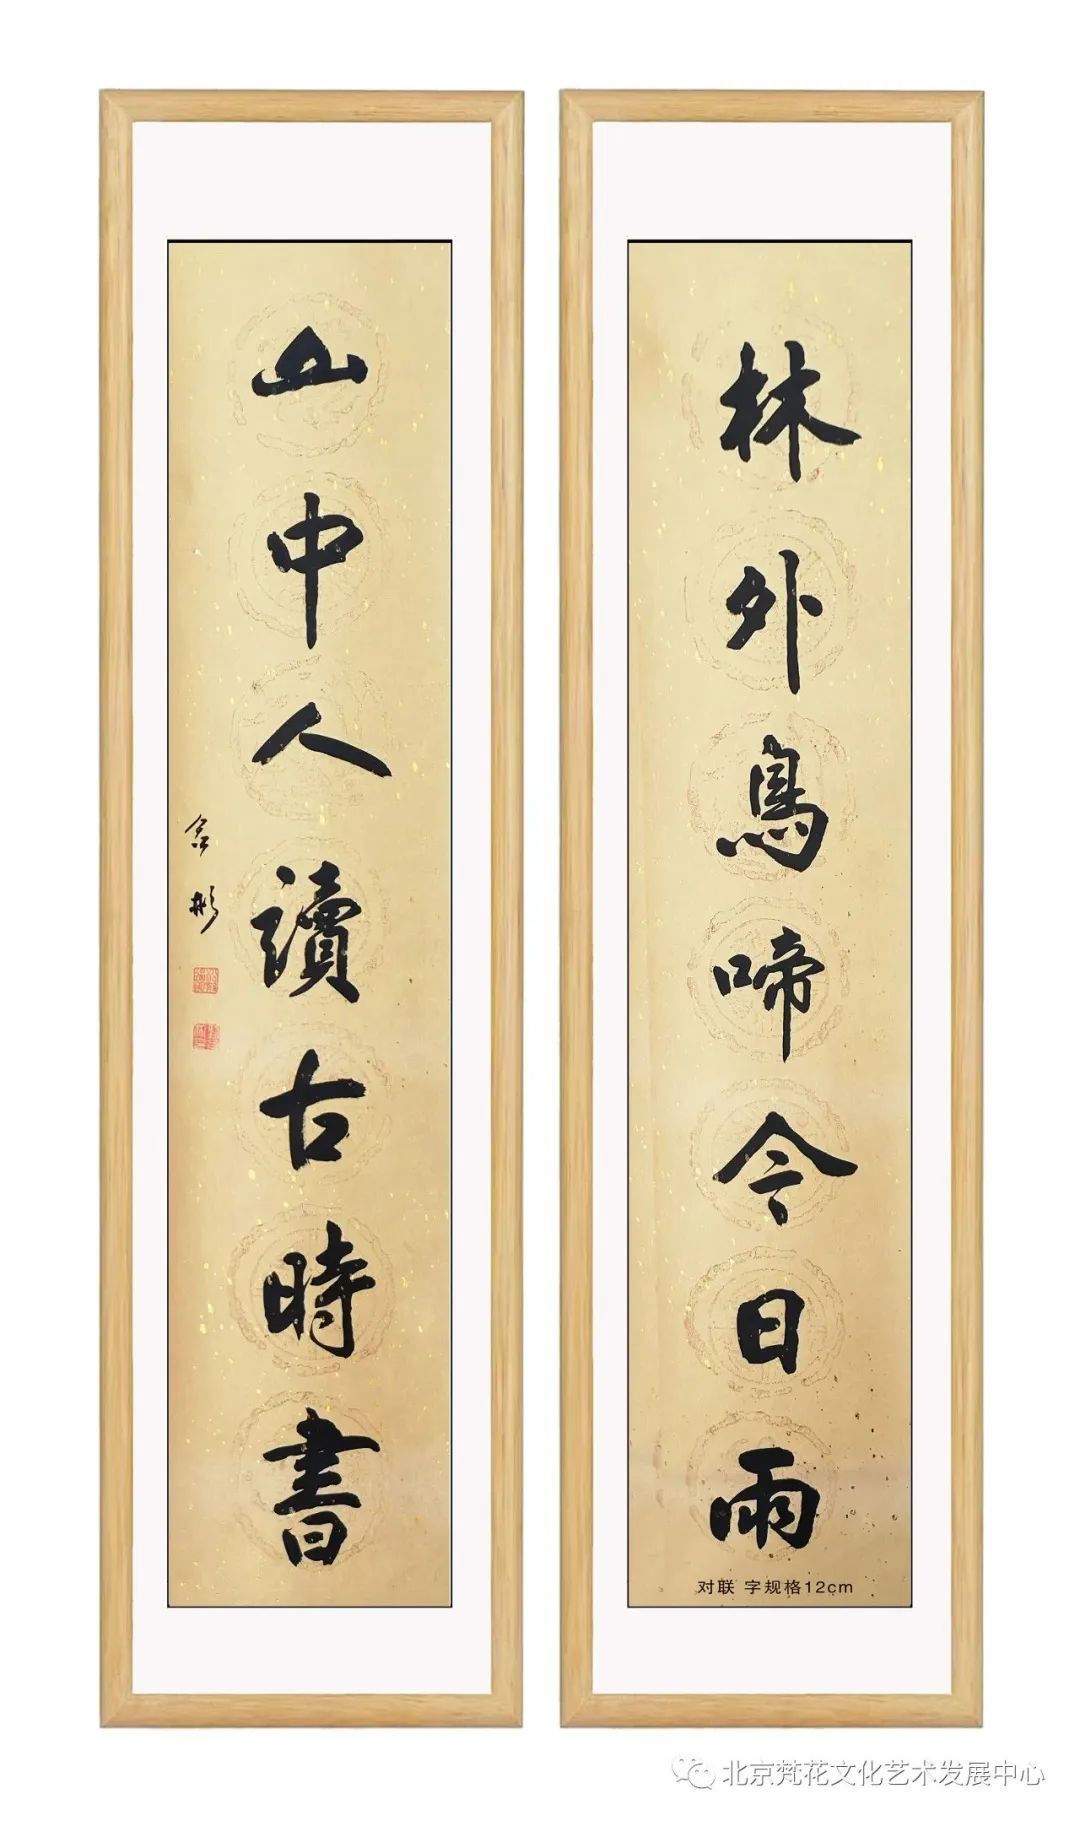 林外鳥啼今日雨
山中人讀古時書
彬
对联 字规格12cm
北京梵花文化艺术发展中心